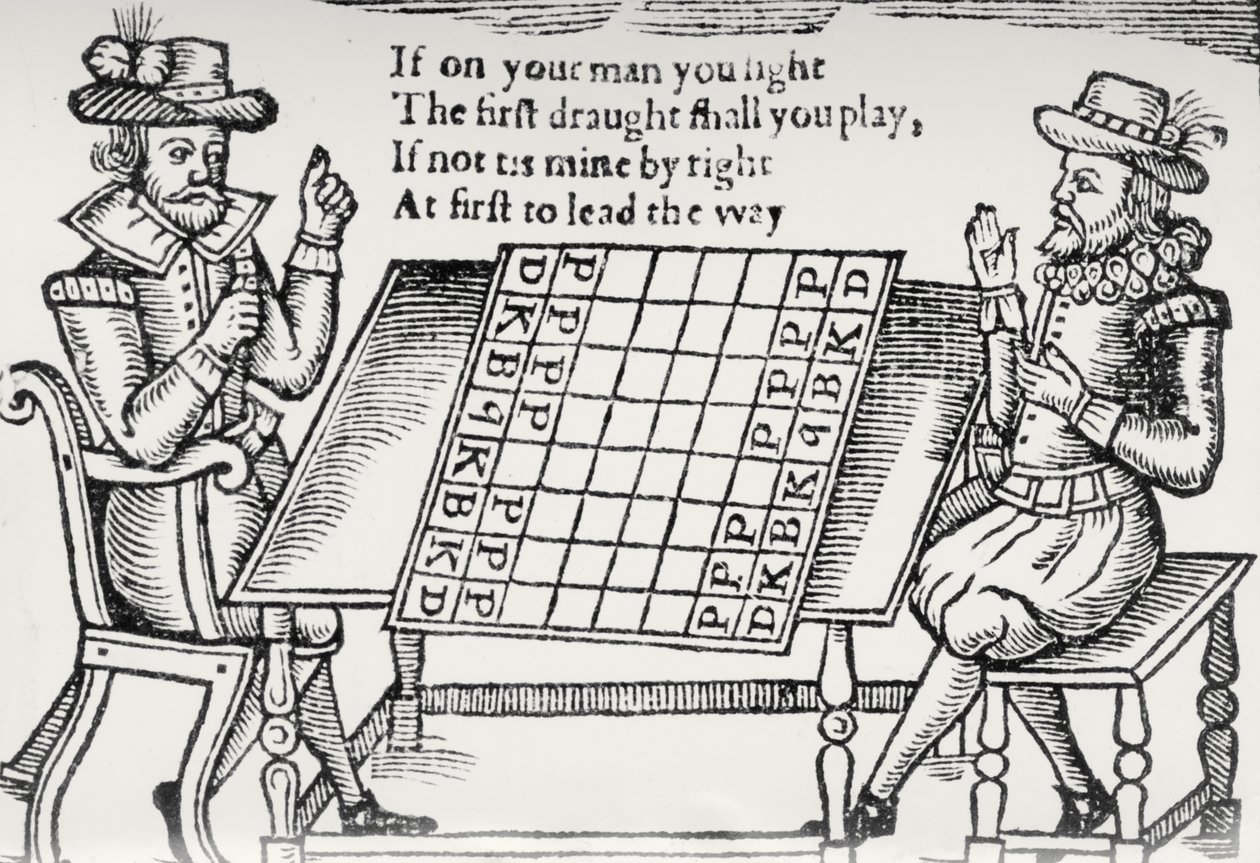 If on your man you light
The firſt draught ſhall you play,
If not tis mine by right
At firſt to lead the way
D P P D
K P P K
B P P B
q P P q
K K
B P P B
K P P K
D P P D